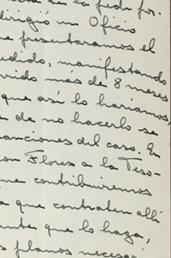 lo pedí for-
dirigió un Oficio
e presentaramos el
edido, manifestando
vido más de 8 meses
que así lo haríamos,
e de no hacerlo se
anciones del caso. En
on Flores a la Teso-
ue contribuiremos
a que contraten allí
ente que lo haga,
s planos necesar